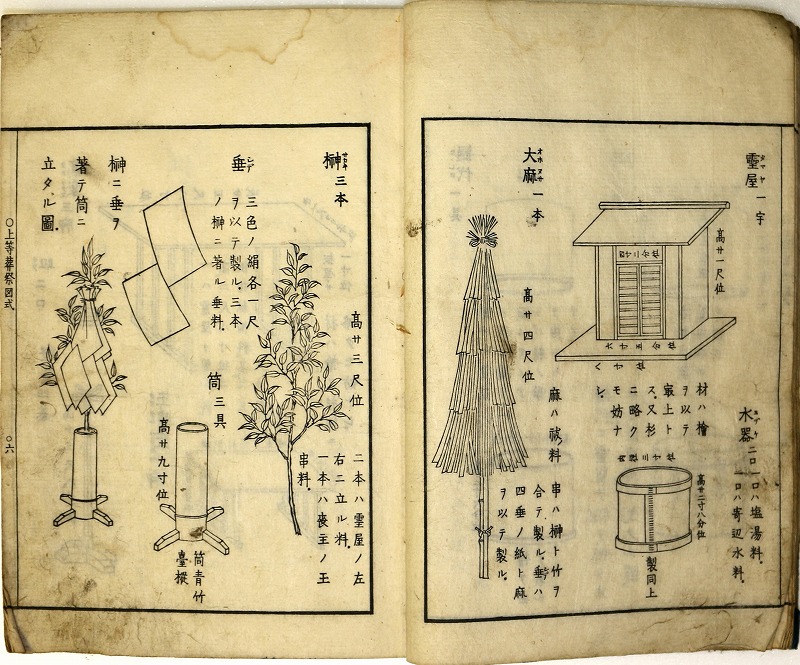 靈屋 一宇
タマヤ
高サ一尺位
六寸五分位
八寸位
材ハ檜
ヲ以テ
最上ト
ス又杉
ニ略ク
モ妨ナ
シ
水器 二口 一口ハ塩湯料
一口ハ寄辺水料
高サ二寸八分位
製同上
大麻 一本
オホヌサ
高サ四尺位
麻ハ祓料
串ハ榊ト竹ヲ
合テ製ル垂ハ
四垂ノ紙ト麻
ヲ以テ製ル
榊 三本
サカキ
高サ三尺位
二本ハ靈屋ノ左
右ニ立ル料
一本ハ喪主ノ玉
串料
垂 三色ノ絹各一尺
シデ
ヲ以テ製ル三本
ノ榊ニ著ル垂料
筒 三具
高サ九寸位
筒青竹
臺樅
榊ニ垂ヲ
著テ筒ニ
立タル圖
〇上等葬祭図式
〇六